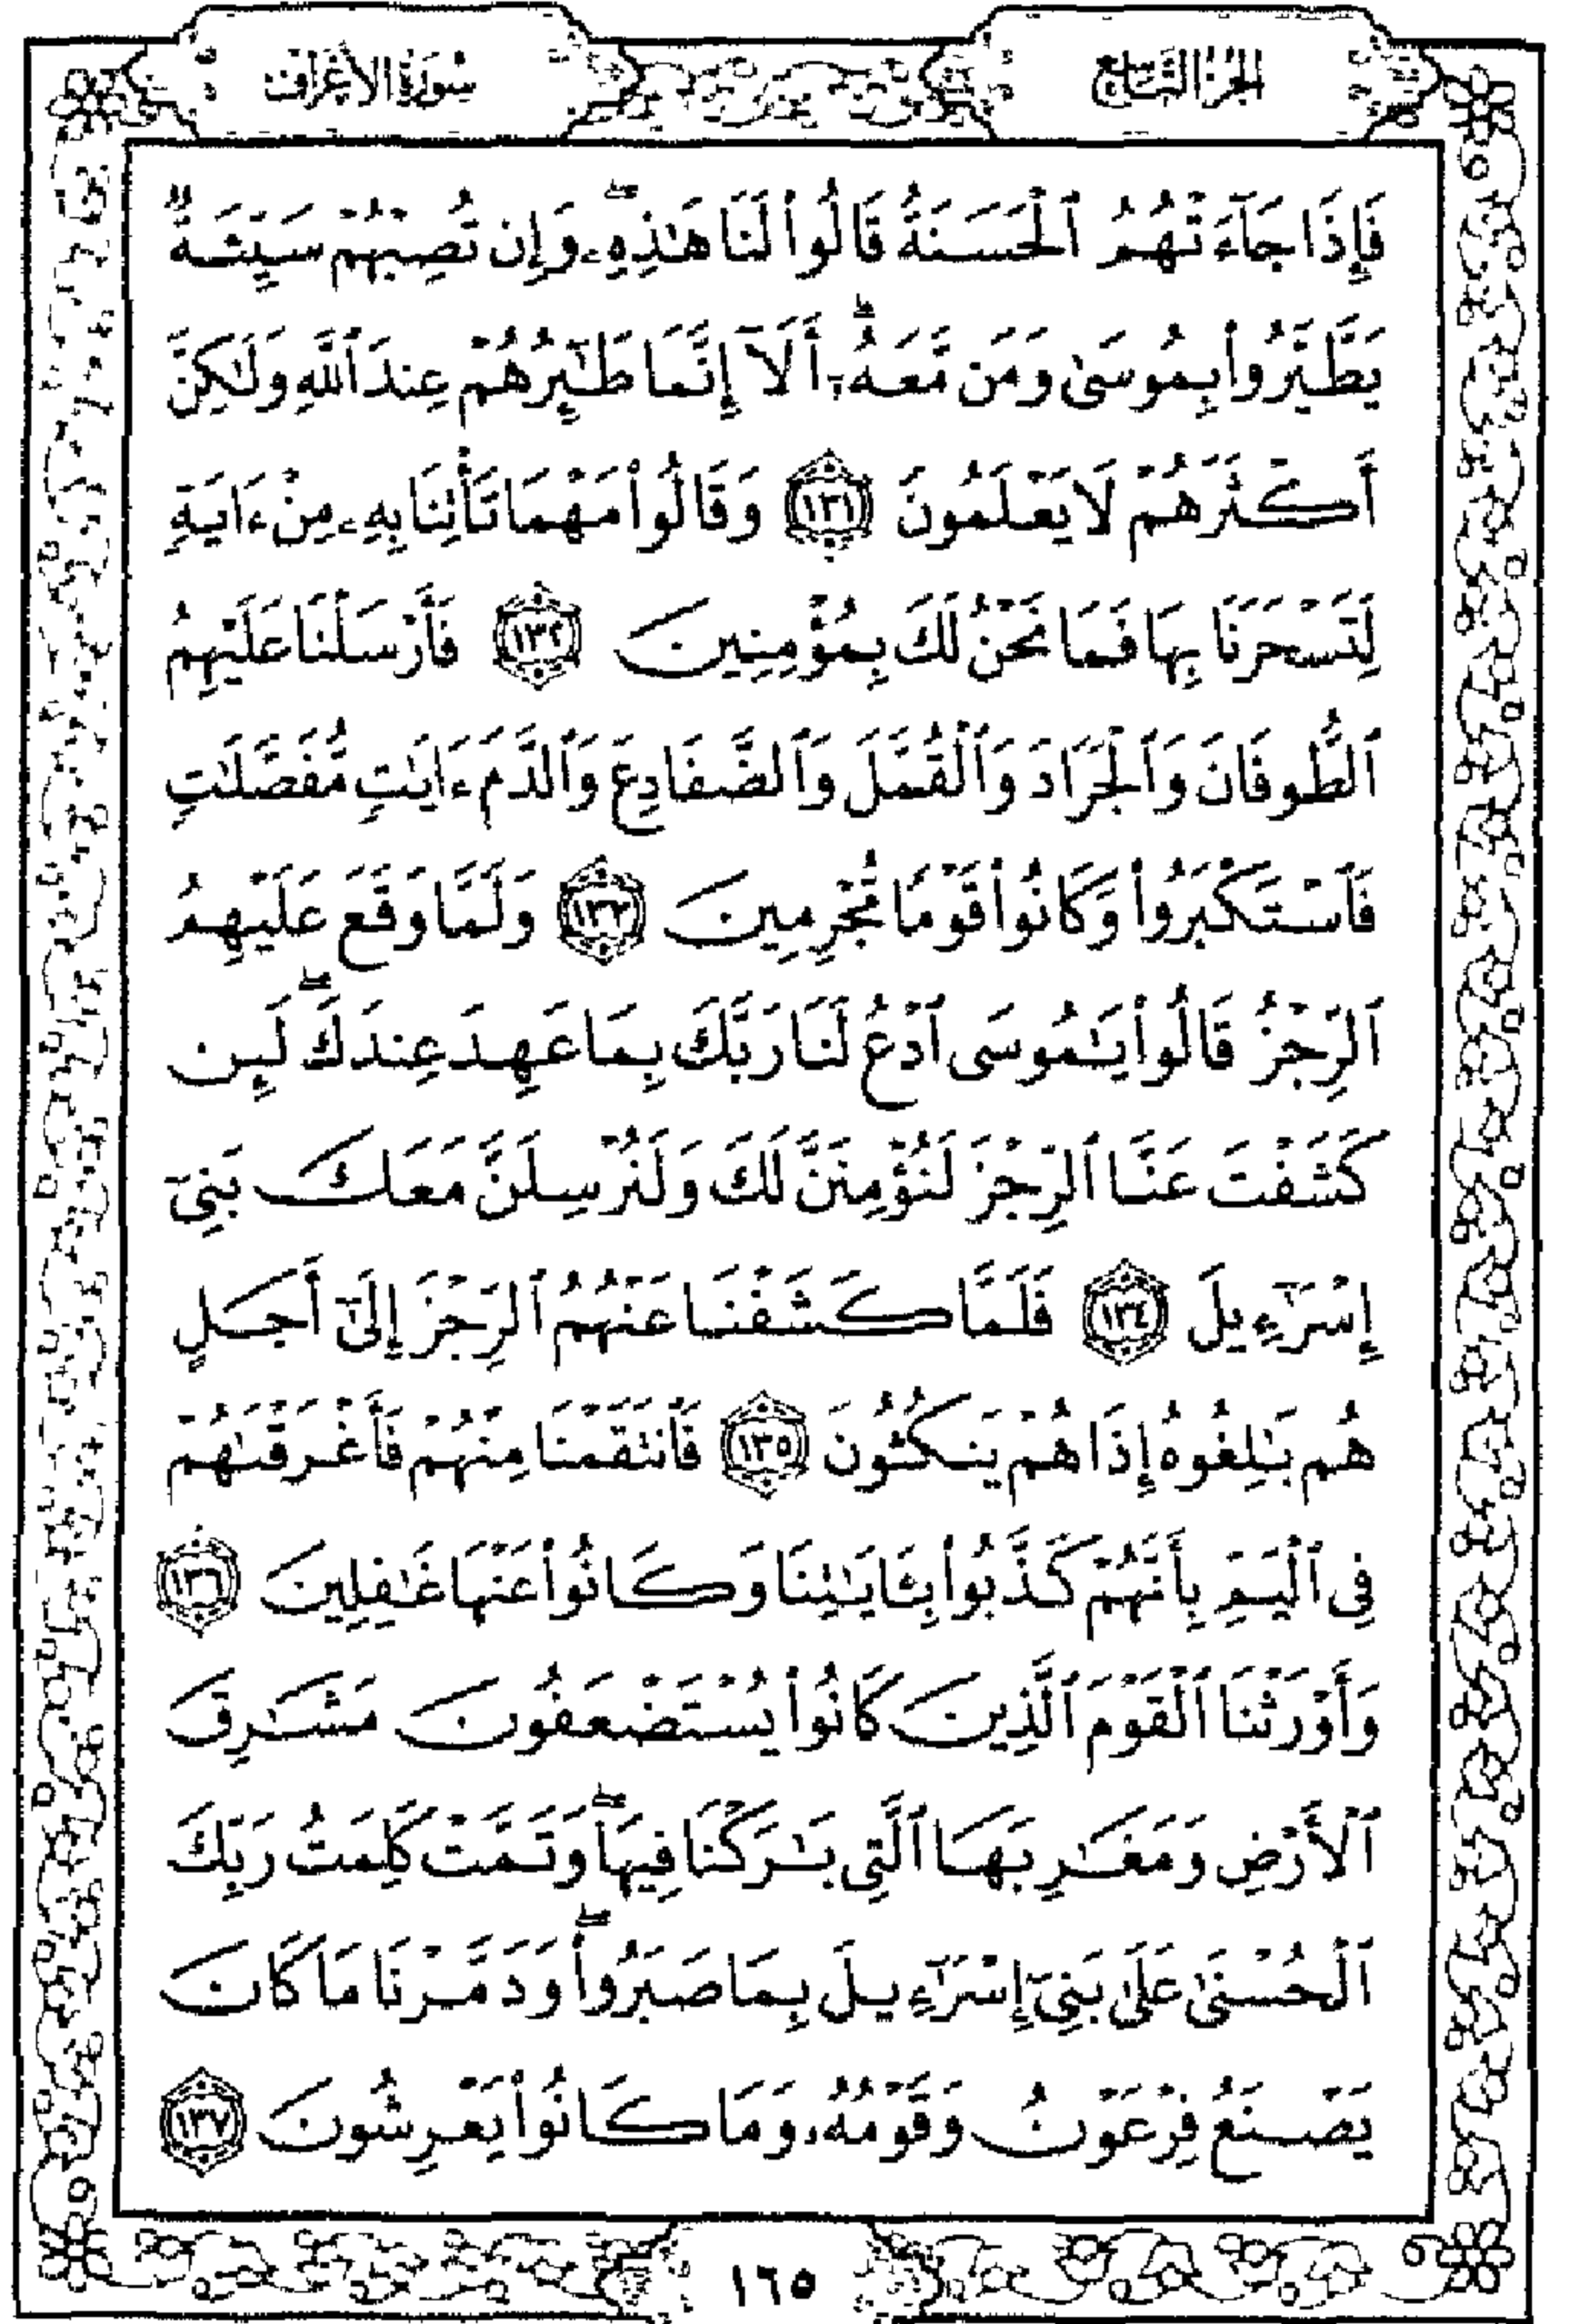 الجزء التاسع
سورة الأعراف
فَإِذَا جَآءَتْهُمُ ٱلْحَسَنَةُ قَالُوا۟ لَنَا هَـٰذِهِۦ ۖ وَإِن تُصِبْهُمْ سَيِّئَةٌ
يَطَّيَّرُوا۟ بِمُوسَىٰ وَمَن مَّعَهُۥٓ ۗ أَلَآ إِنَّمَا طَـٰٓئِرُهُمْ عِندَ ٱللَّهِ وَلَـٰكِنَّ
أَكْثَرَهُمْ لَا يَعْلَمُونَ ١٣١ وَقَالُوا۟ مَهْمَا تَأْتِنَا بِهِۦ مِنْ ءَايَةٍ
لِّتَسْحَرَنَا بِهَا فَمَا نَحْنُ لَكَ بِمُؤْمِنِينَ ١٣٢ فَأَرْسَلْنَا عَلَيْهِمُ
ٱلطُّوفَانَ وَٱلْجَرَادَ وَٱلْقُمَّلَ وَٱلضَّفَادِعَ وَٱلدَّمَ ءَايَـٰتٍ مُّفَصَّلَـٰتٍ
فَٱسْتَكْبَرُوا۟ وَكَانُوا۟ قَوْمًا مُّجْرِمِينَ ١٣٣ وَلَمَّا وَقَعَ عَلَيْهِمُ
ٱلرِّجْزُ قَالُوا۟ يَـٰمُوسَى ٱدْعُ لَنَا رَبَّكَ بِمَا عَهِدَ عِندَكَ ۖ لَئِن
كَشَفْتَ عَنَّا ٱلرِّجْزَ لَنُؤْمِنَنَّ لَكَ وَلَنُرْسِلَنَّ مَعَكَ بَنِىٓ
إِسْرَٰٓءِيلَ ١٣٤ فَلَمَّا كَشَفْنَا عَنْهُمُ ٱلرِّجْزَ إِلَىٰٓ أَجَلٍ
هُم بَـٰلِغُوهُ إِذَا هُمْ يَنكُثُونَ ١٣٥ فَٱنتَقَمْنَا مِنْهُمْ فَأَغْرَقْنَـٰهُمْ
فِى ٱلْيَمِّ بِأَنَّهُمْ كَذَّبُوا۟ بِـَٔايَـٰتِنَا وَكَانُوا۟ عَنْهَا غَـٰفِلِينَ ١٣٦
وَأَوْرَثْنَا ٱلْقَوْمَ ٱلَّذِينَ كَانُوا۟ يُسْتَضْعَفُونَ مَشَـٰرِقَ
ٱلْأَرْضِ وَمَغَـٰرِبَهَا ٱلَّتِى بَـٰرَكْنَا فِيهَا ۖ وَتَمَّتْ كَلِمَتُ رَبِّكَ
ٱلْحُسْنَىٰ عَلَىٰ بَنِىٓ إِسْرَٰٓءِيلَ بِمَا صَبَرُوا۟ ۖ وَدَمَّرْنَا مَا كَانَ
يَصْنَعُ فِرْعَوْنُ وَقَوْمُهُۥ وَمَا كَانُوا۟ يَعْرِشُونَ ١٣٧
١٦٥